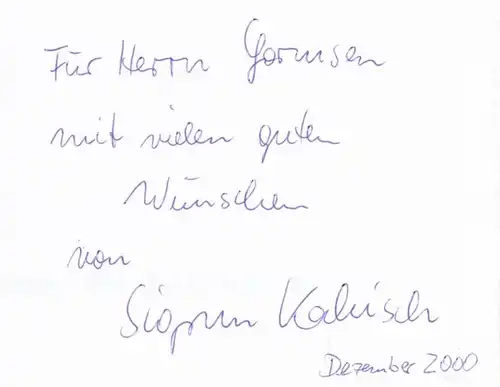 Für Herrn Gormsen
mit vielen guten
Wünschen
von
Sigrun Kalisch
Dezember 2000